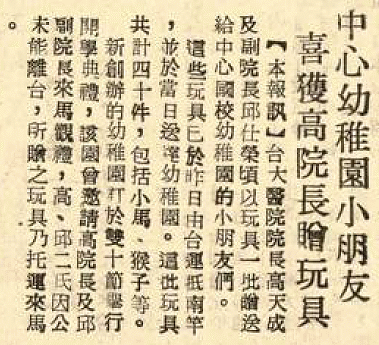 中心幼稚園小朋友
喜獲高院長贈玩具
【本報訊】台大醫院院長高天成
及副院長邱仕榮頃以玩具一批贈送
給中心國校幼稚園的小朋友們。
這些玩具已於昨日由台運抵南竿
，並於當日送達幼稚園。這批玩具
共計四十件，包括小馬、猴子等。
新創辦的幼稚園訂於雙十節舉行
開學典禮，該園曾邀請高院長及邱
副院長來馬觀禮，高、邱二氏因公
未能離台，所贈之玩具乃托運來馬
。